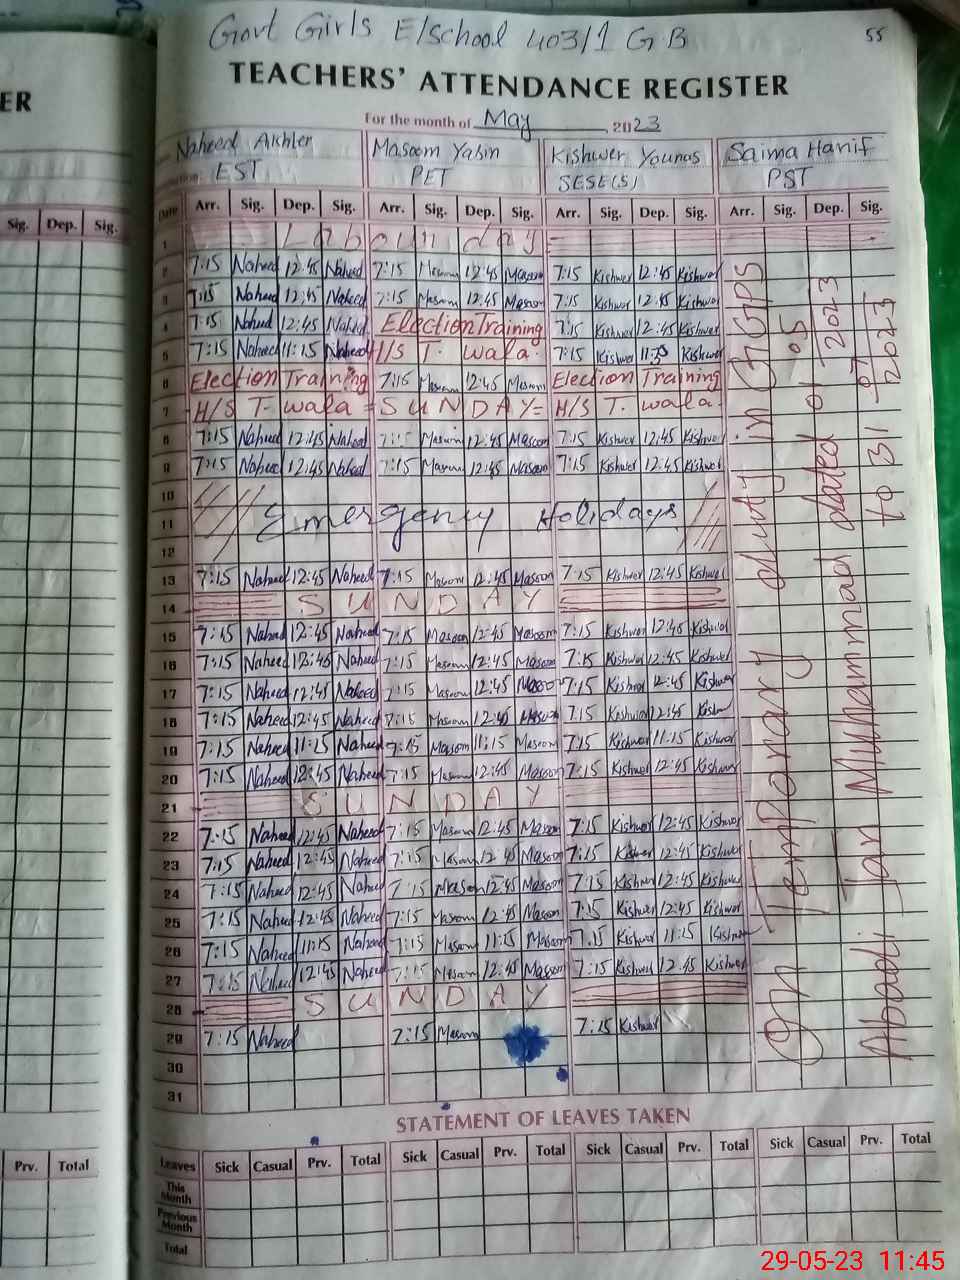 Govt Girls E/School 403/1 GB
55
TEACHERS' ATTENDANCE REGISTER
For the month of May, 2023
Naheed Akhter Masoom Yasin Kishwer Younas Saima Hanif
EST PET SESE(S) PST
Date Arr. Sig. Dep. Sig. Arr. Sig. Dep. Sig. Arr. Sig. Dep. Sig. Arr. Sig. Dep. Sig.
1 Labour day
2 7:15 Naheed 12:45 Naheed 7:15 Masoom 12:45 Masoom 7:15 Kishwer 12:45 Kishwer
3 7:15 Naheed 12:45 Naheed 7:15 Masoom 12:45 Masoom 7:15 Kishwer 12:45 Kishwer
4 7:15 Naheed 12:45 Naheed Election Training 7:15 Kishwer 12:45 Kishwer
5 7:15 Naheed 11:15 Naheed H/S T. wala. 7:15 Kishwer Kishwer
6 Election Training 7:15 Masoom 12:45 Masoom Election Training
7 H/S T. wala =SUNDAY= H/S T. wala.
8 7:15 Naheed 12:45 Naheed 7:15 Masoom 12:45 Masoom 7:15 Kishwer 12:45 Kishwer
9 7:15 Naheed 12:45 Naheed 7:15 Masoom 12:45 Masoom 7:15 Kishwer 12:45 Kishwer
10
11 Emergency Holidays
12
13 7:15 Naheed 12:45 Naheed 7:15 Masoom 12:45 Masoom 7:15 Kishwer 12:45 Kishwer
14 SUNDAY
15 7:15 Naheed 12:45 Naheed 7:15 Masoom 12:45 Masoom 7:15 Kishwer 12:45 Kishwer
16 7:15 Naheed 12:45 Naheed 7:15 Masoom 12:45 Masoom 7:15 Kishwer 12:45 Kishwer
17 7:15 Naheed 12:45 Naheed 7:15 Masoom 12:45 Masoom 7:15 Kishwer 12:45 Kishwer
18 7:15 Naheed 12:45 Naheed 7:15 Masoom 12:45 Masoom 7:15 Kishwer 12:45 Kishw
19 7:15 Naheed 11:15 Naheed 7:15 Masoom 11:15 Masoom 7:15 Kishwer 11:15 Kishwer
20 7:15 Naheed 12:45 Naheed 7:15 Masoom 12:45 Masoom 7:15 Kishwer 12:45 Kishwer
21 SUNDAY
22 7:15 Naheed 12:45 Naheed 7:15 Masoom 12:45 Masoom 7:15 Kishwer 12:45 Kishwer
23 7:15 Naheed 12:45 Naheed 7:15 Masoom 12:45 Masoom 7:15 Kishwer 12:45 Kishwer
24 7:15 Naheed 12:45 Naheed 7:15 Masoom 12:45 Masoom 7:15 Kishwer 12:45 Kishwer
25 7:15 Naheed 12:45 Naheed 7:15 Masoom 12:45 Masoom 7:15 Kishwer 12:45 Kishwer
26 7:15 Naheed 11:15 Naheed 7:15 Masoom 11:15 Masoom 7:15 Kishwer 11:15 Kishwer
27 7:15 Naheed 12:45 Naheed 7:15 Masoom 12:45 Masoom 7:15 Kishwer 12:45 Kishwer
28 SUNDAY
29 7:15 Naheed 7:15 Masoom 7:15 Kishwer
30
31
On Temporary duty in GGPS
Abadi Jan Muhammad dated 01 05/2023
to 31 07/2023
STATEMENT OF LEAVES TAKEN
Leaves Sick Casual Prv. Total Sick Casual Prv. Total Sick Casual Prv. Total Sick Casual Prv. Total
This Month
Previous Month
Total
ER
Sig. Dep. Sig.
Prv. Total
29-05-23 11:45